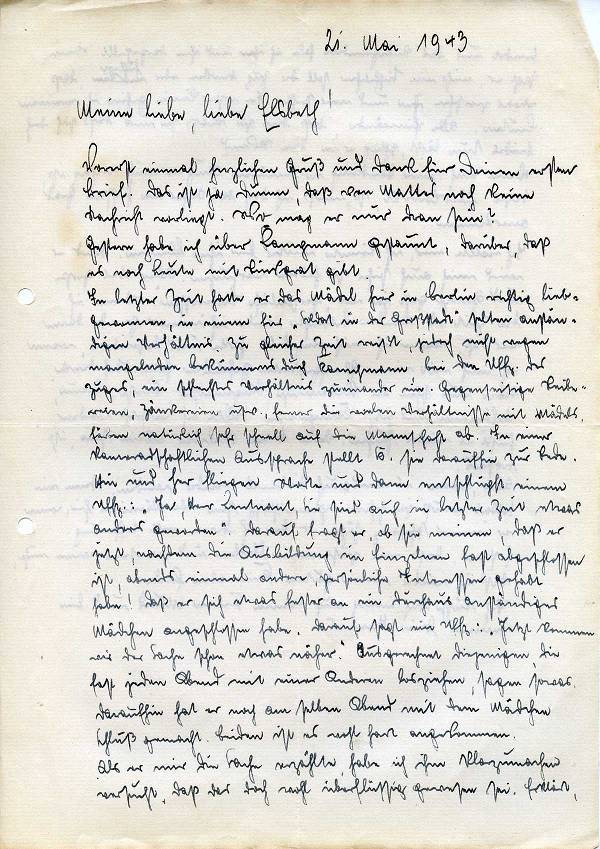 21. Mai 1943
Meine liebe, liebe Elsbeth!
Vorerst einmal herzlichen Gruß und Dank für Deinen ersten
Brief. Das ist ja dumm, daß von Mattes noch keine
Nachricht vorliegt. Wo mag er nur dran sein?
Gestern habe ich über Kampmann gestaunt, darüber, daß
es noch Leute mit Rückgrat gibt.
In letzter Zeit hatte er das Mädel hier in Berlin richtig lieb-
gewonnen, in einem für "Soldat in der Großstadt" selten anstän-
digen Verhältnis. Zu gleicher Zeit reißt, jedoch nicht wegen
mangelnden Bekümmerns durch Kampmann bei den Uffz. des
Zuges, ein schlechtes Verhältnis zueinander ein. Gegenseitige
Zänkereien usw., ferner die vielen Verhältnisse mit Mädels,
färben natürlich sehr schnell auf die Mannschaft ab. In einer
kameradschaftlichen Aussprache stellt K. sie daraufhin zur Rede.
Hin und her fliegen Worte und dann entschlüpft einem
Uffz.: "Ja, Herr Leutnant, Sie sind auch in letzter Zeit etwas
anders geworden". Darauf fragt er, ob sie meinen, daß er
jetzt, nachdem die Ausbildung im Einzelnen fast abgeschlossen
ist, abends einmal andere persönliche Interessen gehabt
habe! Daß er sich etwas fester an ein durchaus anständiges
Mädchen angeschlossen habe. Darauf sagt ein Uffz.: "Jetzt kommen
wir der Sache schon etwas näher." Ausgerechnet diejenigen, die
fast jeden Abend mit einer Anderen losziehen, sagen sowas.
Daraufhin hat er noch am selben Abend mit dem Mädchen
Schluß gemacht. Beiden ist es recht hart angekommen.
Als er mir die Sache erzählte, habe ich ihm klarzumachen
versucht, daß das doch wohl überflüssig gewesen sei. Erklärt,